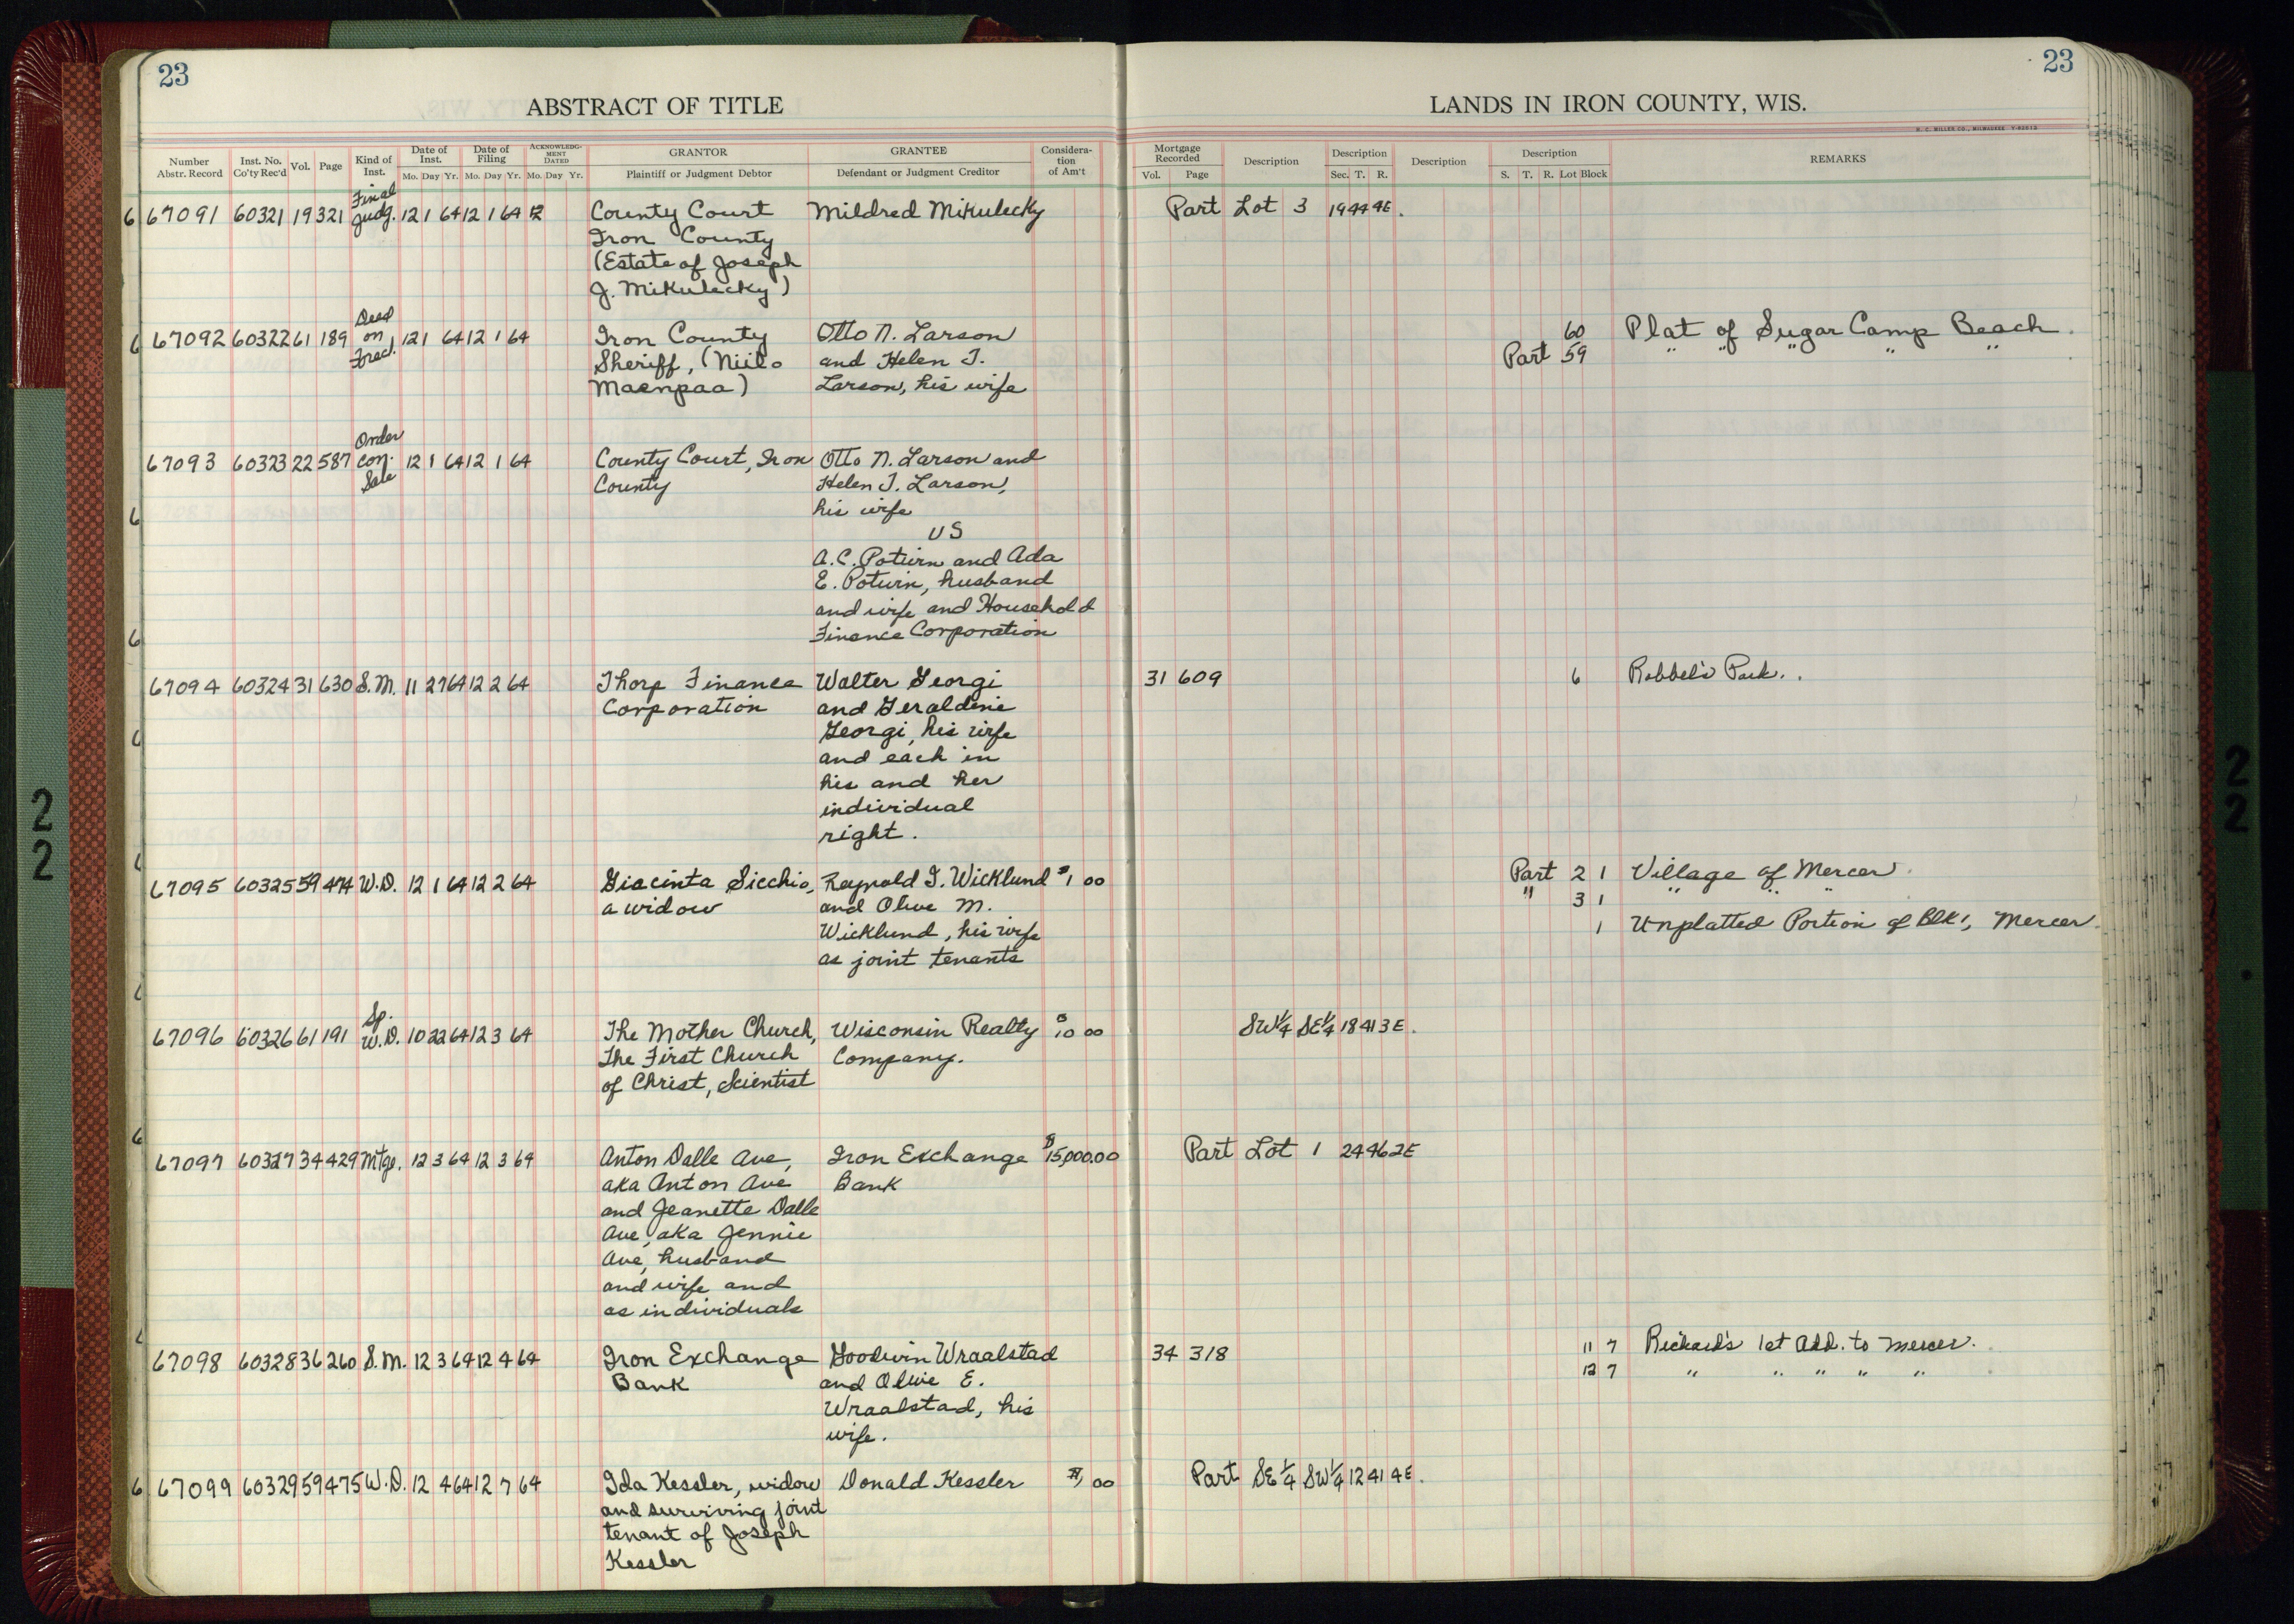 23
23
ABSTRACT OF TITLE
LANDS IN IRON COUNTY, WIS.
H. C. MILLER CO., MILWAUKEE
Number Abstr. Record Inst. No. Co'ty Rec'd Vol. Page Kind of Inst. Date of Inst. Mo. Day Yr. Date of Filing Mo. Day Yr. ACKNOWLEDGMENT DATED Mo. Day Yr. GRANTOR Plaintiff or Judgment Debtor GRANTEE Defendant or Judgment Creditor Consideration of Am't
Mortgage Recorded Vol. Page Description Description Sec. T. R. Description Description S. T. R. Lot Block REMARKS
Final
67091 60321 19 321 Judg. 12 1 64 12 1 64 12 County Court Mildred Mikulecky Part Lot 3 19 44 4E.
Iron County
(Estate of Joseph
J. Mikulecky)
Deed
67092 60322 61 189 on 12 1 64 12 1 64 Iron County Otto N. Larson 60 Plat of Sugar Camp Beach.
Forecl. Sheriff, (Niilo and Helen J. Part 59 " " " " "
Maenpaa) Larson, his wife
Order
67093 60323 22 587 Con. 12 1 64 12 1 64 County Court, Iron Otto N. Larson and
Sale County Helen J. Larson,
his wife
VS
A.C. Potvin and Ada
E. Potvin, husband
and wife and Household
Finance Corporation
67094 60324 31 630 S.M. 11 27 64 12 2 64 Thorp Finance Walter Georgi 31 609 6 Robbel's Park.
Corporation and Geraldine
Georgi, his wife
and each in
his and her
individual
right.
67095 60325 59 474 W.D. 12 1 64 12 2 64 Giacinta Sicchio, Reynold I. Wicklund $1 00 Part 2 1 Village of Mercer
a widow and Olive M. " 3 1 " " "
Wicklund, his wife 1 Unplatted Portion of Blk 1, Mercer.
as joint tenants
Sp.
67096 60326 61 191 W.D. 10 22 64 12 3 64 The Mother Church, Wisconsin Realty $10 00 SW¼ SE¼ 18 41 3E.
The First Church Company.
of Christ, Scientist
67097 60327 34 429 Mtge. 12 3 64 12 3 64 Anton Dalle Ave, Iron Exchange $15,000.00 Part Lot 1 24 46 2E
aka Anton Ave Bank
and Jeanette Dalle
Ave, aka Jennie
Ave, husband
and wife and
as individuals
67098 60328 36 260 S.M. 12 3 64 12 4 64 Iron Exchange Goodwin Wraalstad 34 318 11 7 Richard's 1st Add. to Mercer.
Bank and Olive E. 12 7 " " " " "
Wraalstad, his
wife.
67099 60329 59 475 W.D. 12 4 64 12 7 64 Ida Kessler, widow Donald Kessler $1, 00 Part SE¼ SW¼ 12 41 4E.
and surviving joint
tenant of Joseph
Kessler
22
22